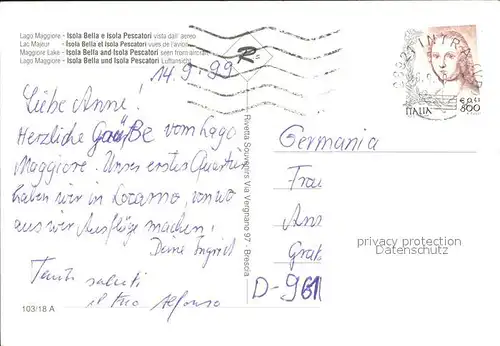 Lago Maggiore - Isola Bella e Isola Pescatori vista dall' aereo
Lac Majeur - Isola Bella et Isola Pescatori vues de l'avion
Maggiore Lake - Isola Bella and Isola Pescatori seen from aircraft
Lago Maggiore - Isola Bella und Isola Pescatori Luftansicht
R
14.9.99
INTRA (VB)
€ 0,41
800
ITALIA
Liebe Anne!
Herzliche Grüße vom Lago
Maggiore. Unser erstes Quartier
haben wir in Locarno, von wo
aus wir Ausflüge machen!
Deine Ingrid
Tanti saluti
il tuo Alfonso
103/18 A
Rivetta Souvenirs Via Vergnano 97 - Brescia
Germania
Frau
Ans
Grat
D-961
privacy protection
Datenschutz